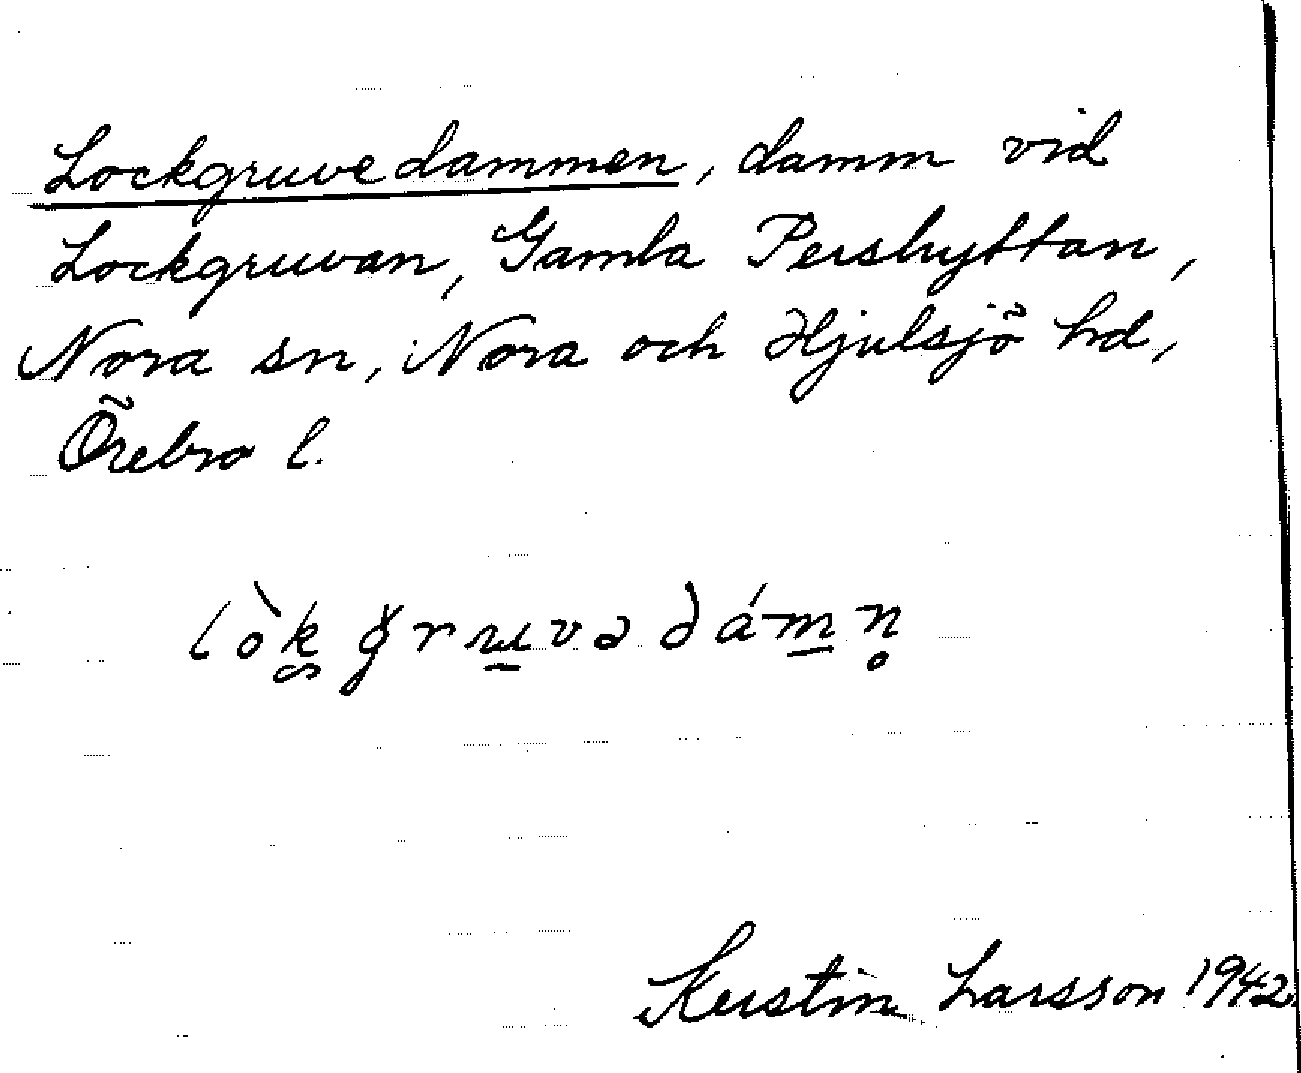 Lockgruvedammen, damm vid
Lockgruvan, Gamla Pershyttan,
Nora sn, Nora och Hjulsjö hd,
Örebro l.
Kerstin Larsson 1942